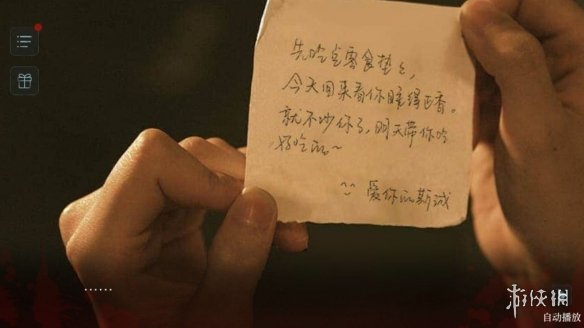 先吃点零食垫垫,
今天回来看你睡得正香。
就不吵你了,明天带你吃
好吃的~
爱你的斯诚
......
游侠网
自动播放